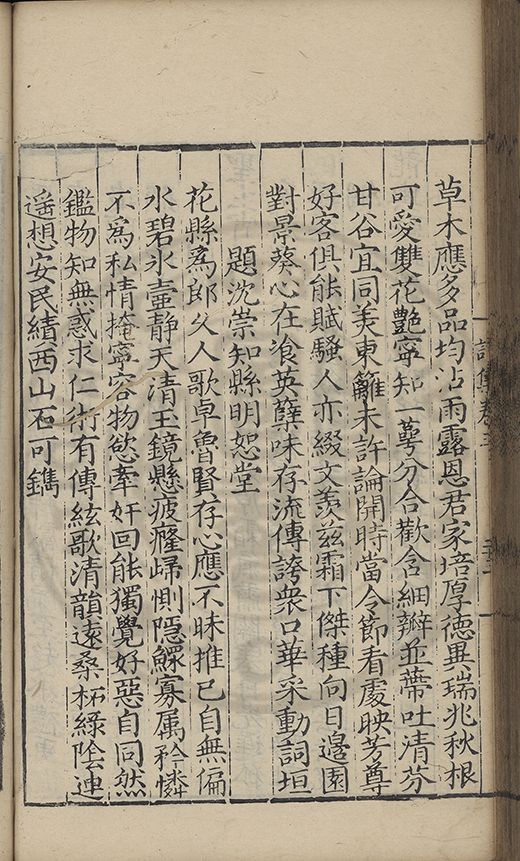 草木應多品均沾雨露恩君家培厚德異瑞兆秋根
可愛雙花艷寧知一蕚分合歡含細瓣並蒂吐清芬
甘谷宜同美東籬未許論開時當令節看處映芳尊
好客俱能賦騷人亦綴文羨茲霜下傑種向日邊園
對景葵心在飡英蘖味存流傳誇衆口華采動詞垣
題沈崇知縣明恕堂
花縣爲郎久人歌卓魯賢存心應不昧推已自無偏
水碧氷壺静天清玉鏡懸疲癃歸惻隱鰥寡属矜憐
不爲私情掩寧容物慾牽奸回能獨覺好惡自同然
鑑物知無惑求仁術有傳絃歌清韻遠桑柘綠陰連
遥想安民績西山石可鐫
詩集卷三